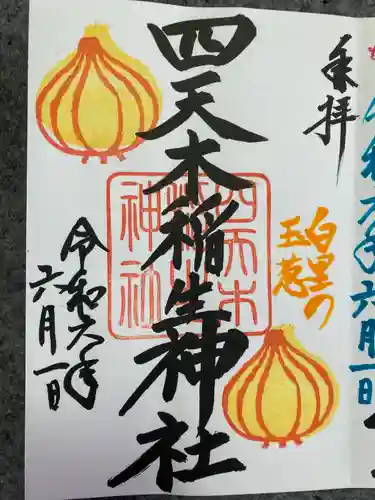 令和六年六月一日
奉拝
白里の
玉葱
四天木稲生神社
四天木
神社
令和六年
六月一日